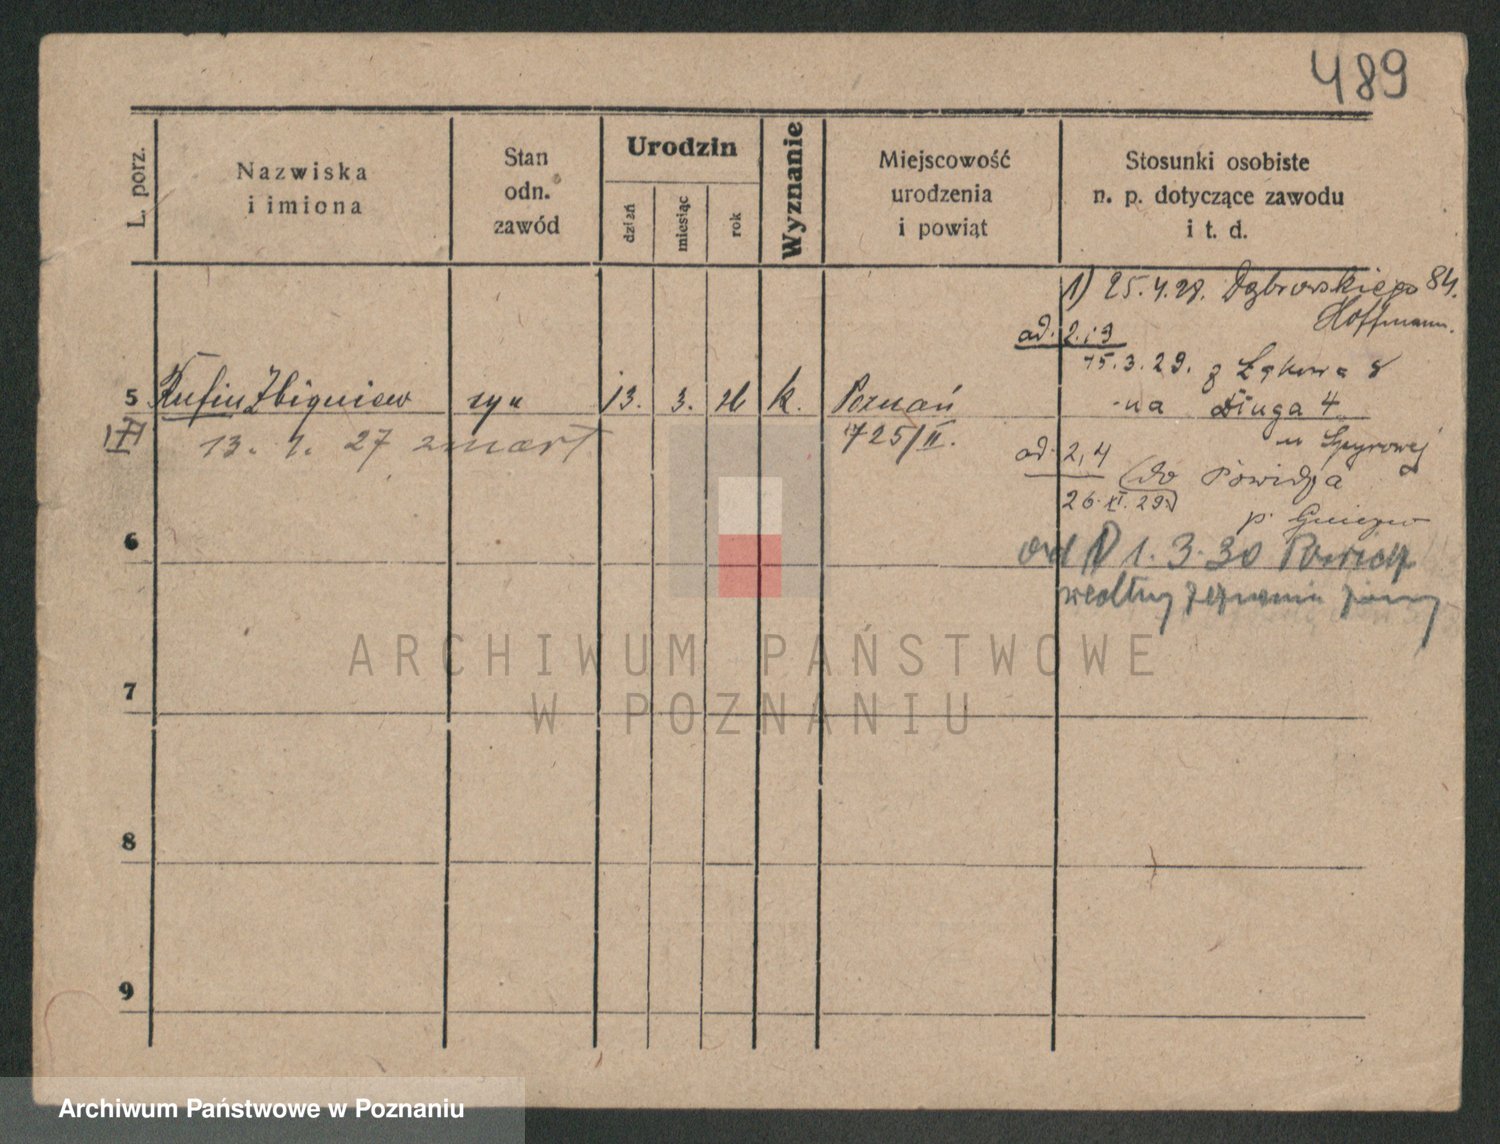 489
L. porz.
Nazwiska
i imiona
Stan
odn.
zawód
Urodzin
dzień
miesiąc
rok
Wyznanie
Miejscowość
urodzenia
i powiąt
Stosunki osobiste
n. p. dotyczące zawodu
i t. d.
1) 25.4.28. Dąbrowskiego 84.
Hoffmann.
od. 2 i 3
15.3.29. z Łąkowa 8
5 Rufin Zbigniew syn 13. 3. 26 k. Poznań
na Długa 4
III 13. 1. 27 zmarł
725/II.
u Spyrowej
od. 2,4 (do Powidza
26.XI.29.)
p. Gniezno
6
od 1.3.30
według
7
8
9
ARCHIWUM PAŃSTWOWE
W POZNANIU
Archiwum Państwowe w Poznaniu